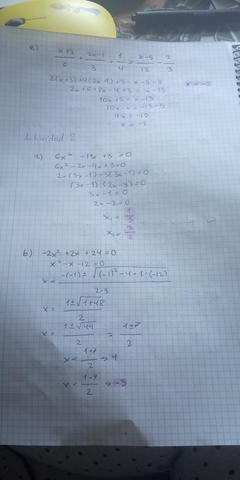 e) x+3/6 + 2x-1/3 + 1/4 = x-5/12 - 2/3
2(x+3)+4(2x-1)+3 = x-5-8
2x+6+8x-4+3 = x-13
10x+5 = x-13
10x-x = -13-5
x = -2
Actividad 2
a) 6x² - 11x + 3 = 0
6x² - 2x - 9x + 3 = 0
2x(3x-1) - 3(3x-1) = 0
(3x-1)(2x-3) = 0
3x-1 = 0
2x-3 = 0
x₁ = 1/3
x₂ = 3/2
b) -2x² + 2x + 24 = 0
x² - x - 12 = 0
x = -(-1) ± √(-1)² - 4·1·(-12) / 2·1
x = 1±√1+48 / 2
x = 1±√49 / 2 = 1±7/2
x = 1+7/2 → 4
x = 1-7/2 → -3